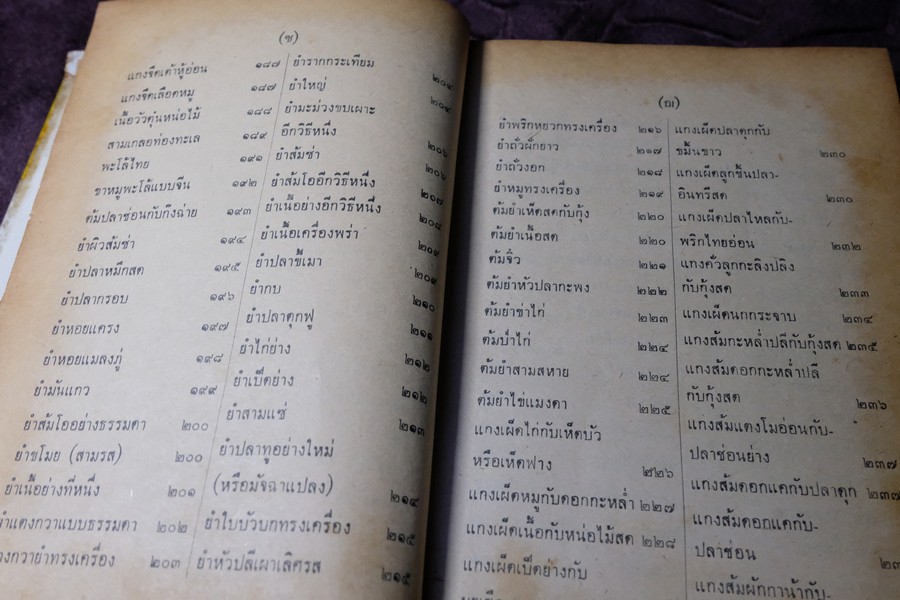 (ช)
แกงจืดเต้าหู้อ่อน ๑๘๗
แกงจืดเลือดหมู ๑๘๗
เนื้อวัวตุ๋นหน่อไม้ ๑๘๘
สามเกลอท่องทะเล ๑๘๙
พะโล้ไทย ๑๙๑
ขาหมูพะโล้แบบจีน ๑๙๒
ต้มปลาช่อนกับกึงฉ่าย ๑๙๓
ยำผิวส้มซ่า ๑๙๔
ยำปลาหมึกสด ๑๙๕
ยำปลากรอบ ๑๙๖
ยำหอยแครง ๑๙๗
ยำหอยแมลงภู่ ๑๙๘
ยำมันแกว ๑๙๙
ยำส้มโออย่างธรรมดา ๒๐๐
ยำขโมย (สามรส) ๒๐๐
ยำเนื้อย่างที่หนึ่ง ๒๐๑
ยำแตงกวาแบบธรรมดา ๒๐๒
แตงกวายำทรงเครื่อง ๒๐๓
ยำรากกระเทียม ๒๐๔
ยำใหญ่ ๒๐๔
ยำมะม่วงขบเผาะ
อีกวิธีหนึ่ง ๒๐๖
ยำส้มซ่า ๒๐๖
ยำส้มโออีกวิธีหนึ่ง ๒๐๗
ยำเนื้อย่างอีกวิธีหนึ่ง ๒๐๘
ยำเนื้อเครื่องพร่า ๒๐๙
ยำปลาขี้เมา ๒๐๙
ยำกบ ๒๑๐
ยำปลาดุกฟู ๒๑๑
ยำไก่ย่าง ๒๑๒
ยำเป็ดย่าง ๒๑๒
ยำสามแซ่ ๒๑๓
ยำปลาทูอย่างใหม่
(หรือมัจฉาแปลง) ๒๑๔
ยำใบบัวบกทรงเครื่อง ๒๑๕
ยำหัวปลีเผาเลิศรส ๒๑๕
(ฌ)
ยำพริกหยวกทรงเครื่อง ๒๑๖
ยำถั่วฝักยาว ๒๑๗
ยำถั่วงอก ๒๑๘
ยำหมูทรงเครื่อง ๒๑๙
ต้มยำเห็ดสดกับกุ้ง ๒๒๐
ต้มยำเนื้อสด ๒๒๐
ต้มจิ๋ว ๒๒๑
ต้มยำหัวปลากะพง ๒๒๒
ต้มยำข่าไก่ ๒๒๓
ต้มยำไก่ ๒๒๔
ต้มยำสามสหาย ๒๒๔
ต้มยำไข่แมงดา ๒๒๕
แกงเผ็ดไก่กับเห็ดบัว
หรือเห็ดฟาง ๒๒๖
แกงเผ็ดหมูกับดอกกะหล่ำ ๒๒๗
แกงเผ็ดเนื้อกับหน่อไม้สด ๒๒๘
แกงเผ็ดเป็ดย่างกับ
แกงเผ็ดปลาดุกกับ
ขมิ้นขาว ๒๓๐
แกงเผ็ดลูกชิ้นปลา-
อินทรีสด ๒๓๐
แกงเผ็ดปลาไหลกับ-
พริกไทยอ่อน ๒๓๒
แกงคั่วลูกตะลิงปลิง
กับกุ้งสด ๒๓๓
แกงเผ็ดนกกระจาบ ๒๓๔
แกงส้มกะหล่ำปลีกับกุ้งสด ๒๓๕
แกงส้มดอกกะหล่ำปลี
กับกุ้งสด ๒๓๖
แกงส้มแตงโมอ่อนกับ-
ปลาช่อนย่าง ๒๓๗
แกงส้มดอกแคกับปลาดุก ๒๓๗
แกงส้มดอกแคกับ-
ปลาช่อน
แกงส้มผักกาน้ากับ-